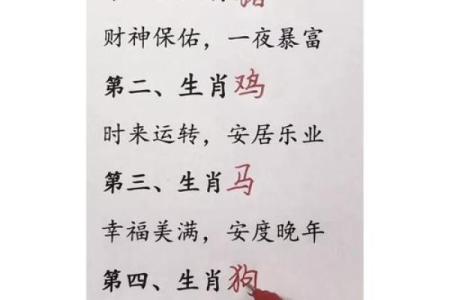 财神保佑，一夜暴富
第二、生肖鸡
时来运转，安居乐业
第三、生肖马
幸福美满，安度晚年
第四、生肖狗